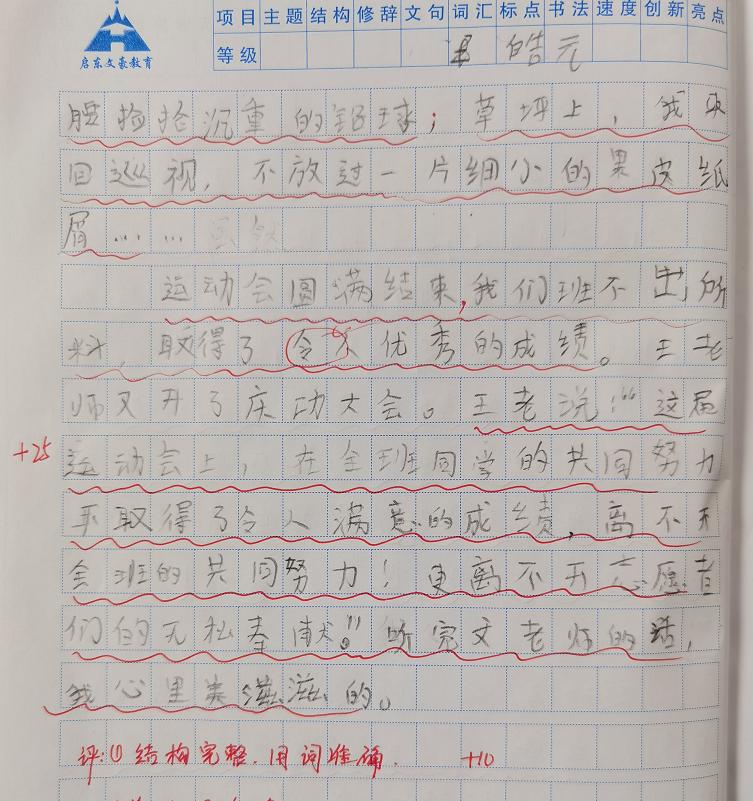 启东文豪教育
项目 主题 结构 修辞 文句 词汇 标点 书法 速度 创新 亮点
等级 皓元
腰捡拾沉重的铅球；草坪上，我来
回巡视，不放过一片细小的果皮纸
屑……
运动会圆满结束，我们班不出所
料，取得了令人优秀的成绩。王老
师又开了庆功大会。王老说：“这届
+25
运动会上，在全班同学的共同努力
取得了令人满意的成绩，离不开
全班的共同努力！更离不开志愿者
们的无私奉献”。听完文老师的话，
我心里美滋滋的。
评：①结构完整，用词准确． +10